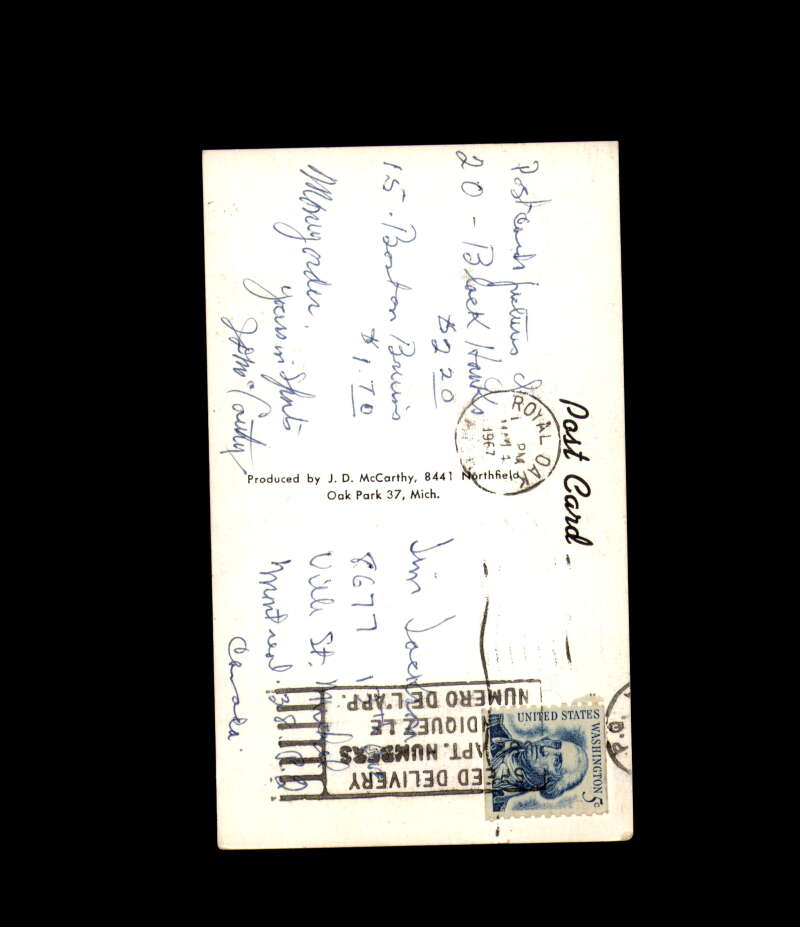 Post Card
Postcards pictures of
20 - Black Hawks
$2.20
15 - Boston Bruins
$1.70
Money order.
yours in Sports
J D McCarthy
Produced by J. D. McCarthy, 8441 Northfield,
Oak Park 37, Mich.
ROYAL OAK
PM
1967
Jim Jackson
8677
Ville St. Michel
Montreal. 38. P.Q
Canada.
UNITED STATES
WASHINGTON 5c
SPEED DELIVERY
APT. NUMBERS
INDIQUEZ LE
NUMERO DE L'APP.